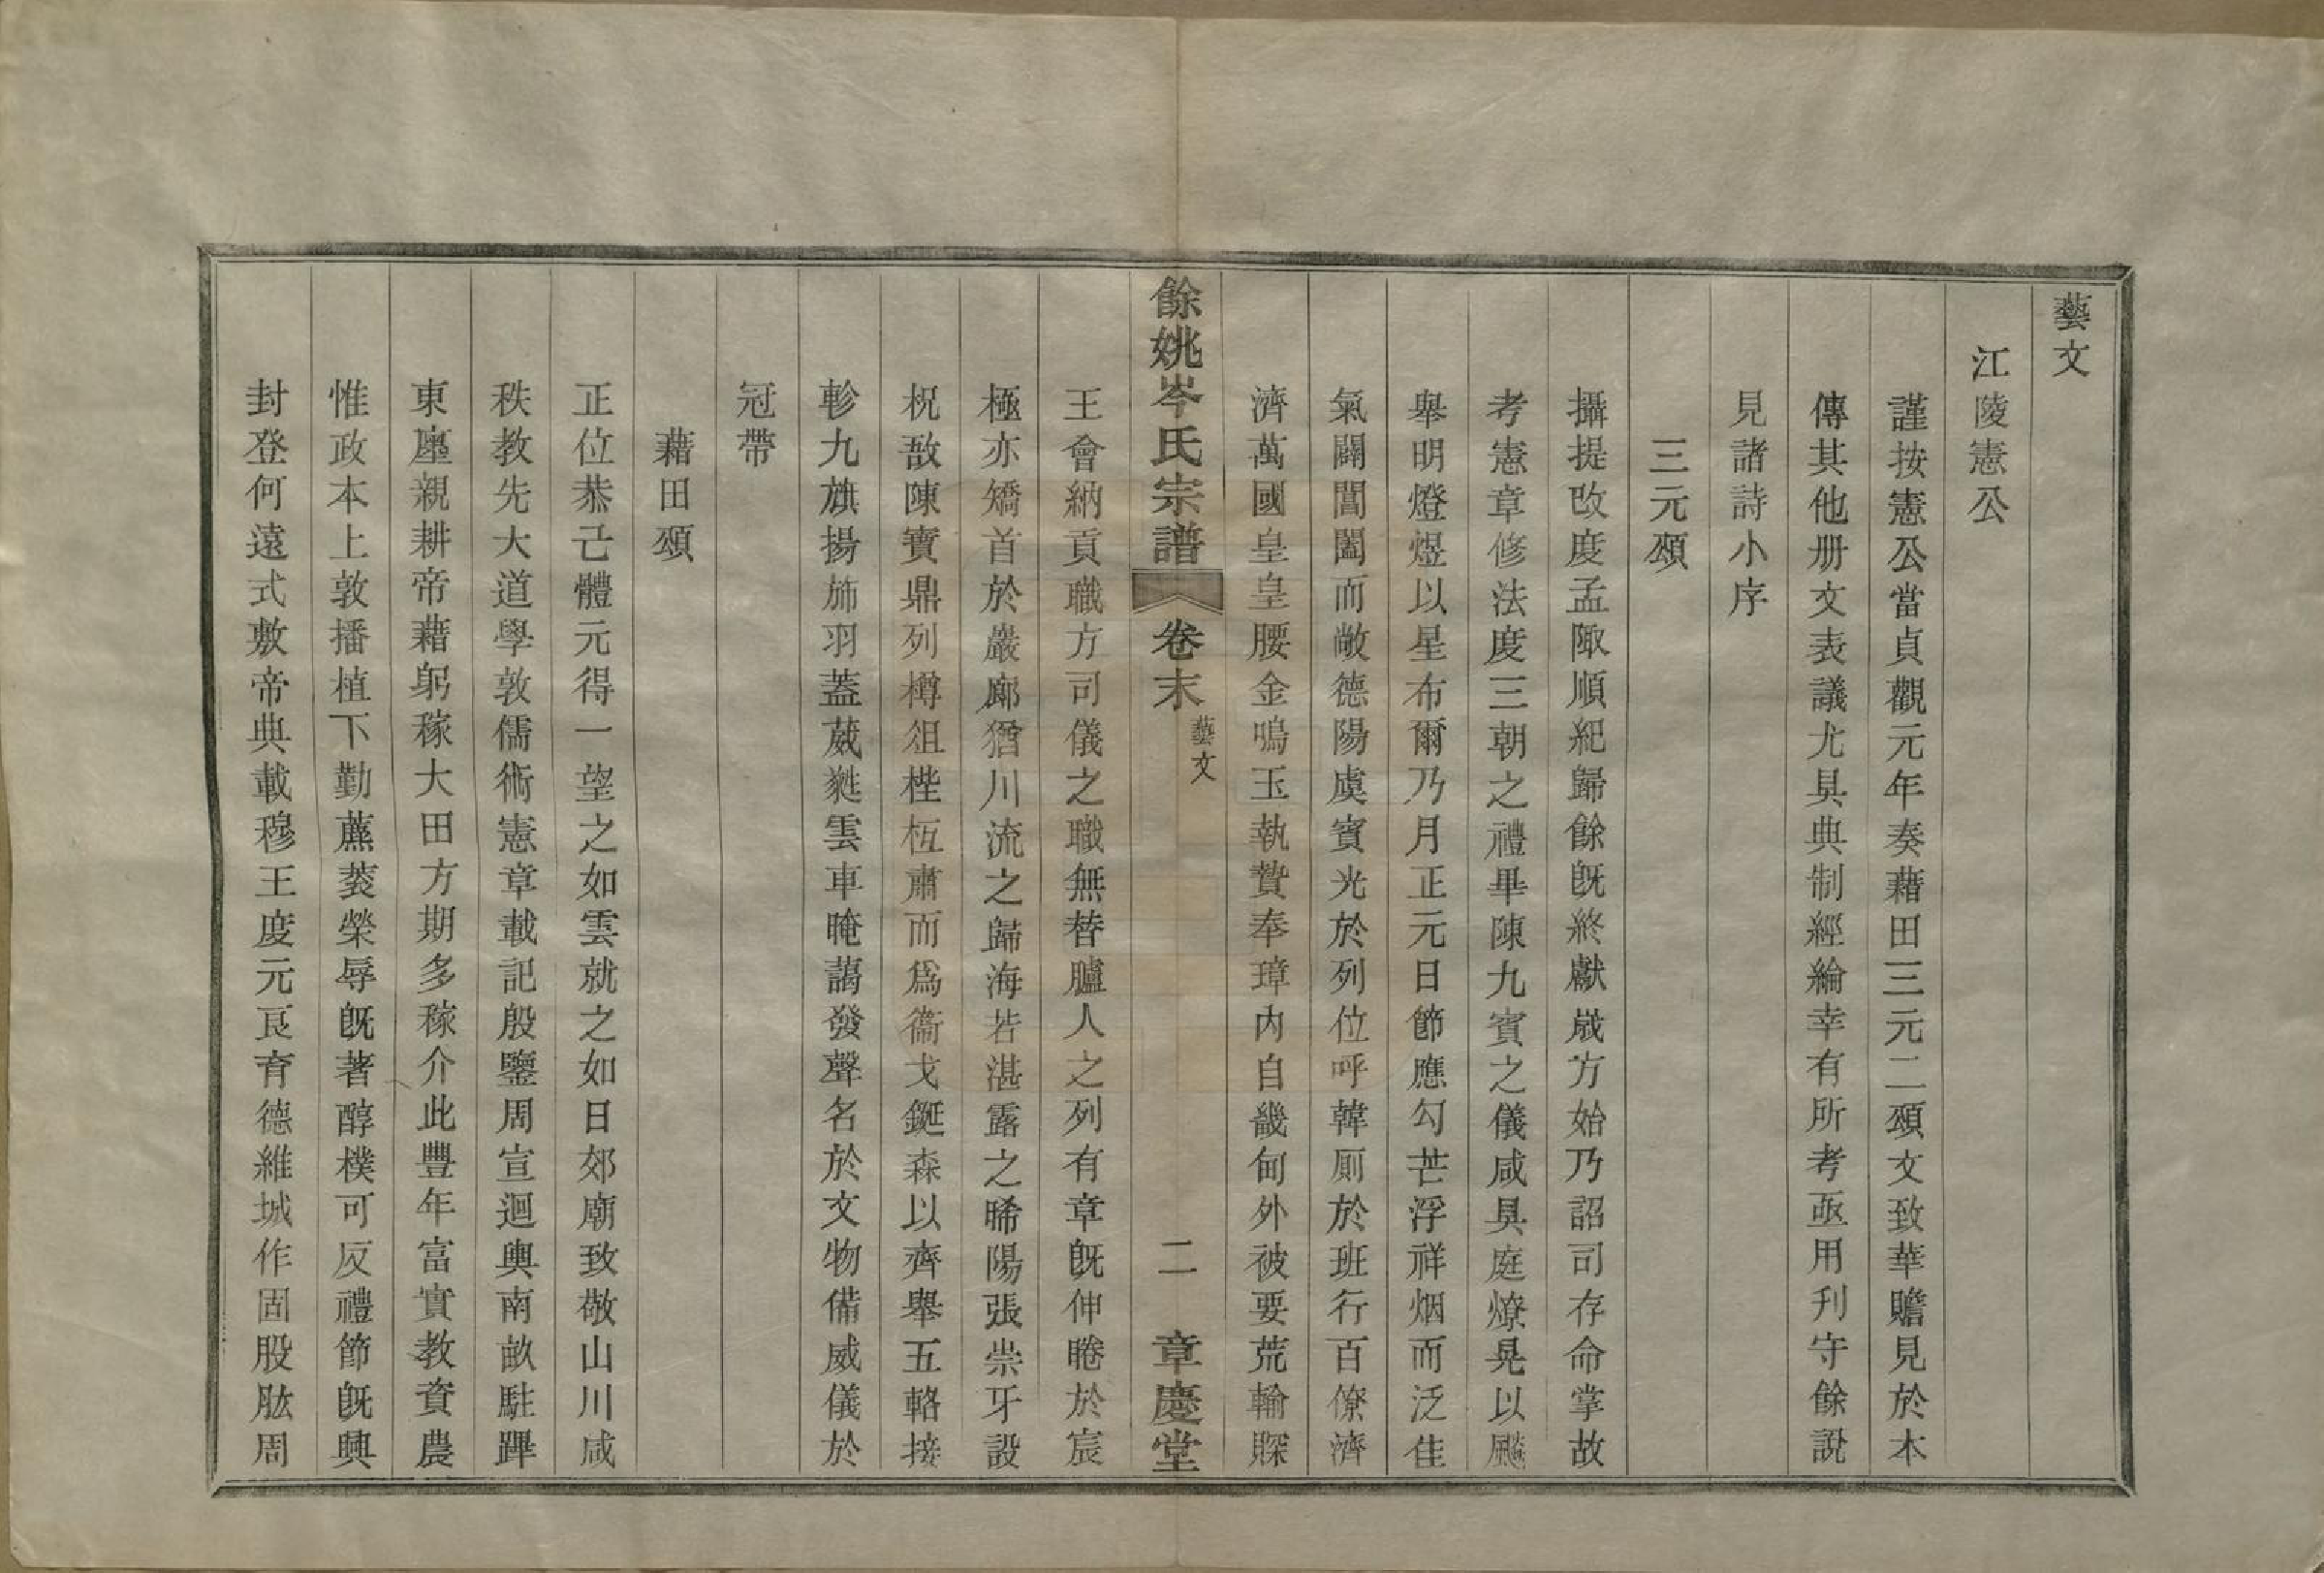 藝文
江陵憲公
謹按憲公當貞觀元年奏藉田三元二頌文致華贍見於本
傳其他册文表議尤具典制經綸幸有所考亟用刋守餘說
見諸詩小序
三元頌
攝提改度孟陬順紀歸餘旣終獻歲方始乃詔司存命掌故
考憲章修法度三朝之禮畢陳九賓之儀咸具庭燎晃以飈
舉明燈煜以星布爾乃月正元日節應勾芒浮祥烟而泛佳
氣闢閶闔而敞德陽虞賓光於列位呼韓厠於班行百僚濟
濟萬國皇皇腰金鳴玉執贄奉璋內自畿甸外被要荒輸賝
餘姚岑氏宗譜 卷末 藝文 二 章慶堂
王會納貢職方司儀之職無替臚人之列有章旣伸睠於宸
極亦矯首於巖廊猶川流之歸海若湛露之晞陽張崇牙設
柷敔陳寶鼎列樽俎梐枑肅而爲衞戈鋋森以齊舉五輅接
軫九旗揚斾羽蓋葳蕤雲車晻藹發聲名於文物備威儀於
冠帶
藉田頌
正位恭己體元得一望之如雲就之如日郊廟致敬山川咸
秩敎先大道學敦儒術憲章載記殷鑒周宣迴輿南畝駐蹕
東廛親耕帝藉躬稼大田方期多稼介此豐年富實敎資農
惟政本上敦播植下勤藨蔉榮辱旣著醇樸可反禮節旣興
封登何遠式敷帝典載穆王度元良育德維城作固股肱周